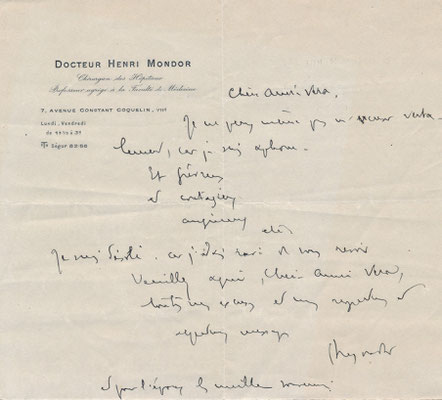 DOCTEUR HENRI MONDOR
Chirurgien des Hôpitaux
Professeur agrégé à la Faculté de Médecine
7, AVENUE CONSTANT COQUELIN, VIIE
Lundi, Vendredi
Ségur 65-86
Je ne peux même pas m'excuser verba-
lement, car je suis aphone.
Et fiévreux
et contagieux
angineux
etc
Je suis désolé. car j'étais ravi de vous revoir
Veuillez agréer, Chère
toutes mes excuses et mes respectueux et
hommages
Mondor
et pour l'époux les meilleurs souvenirs